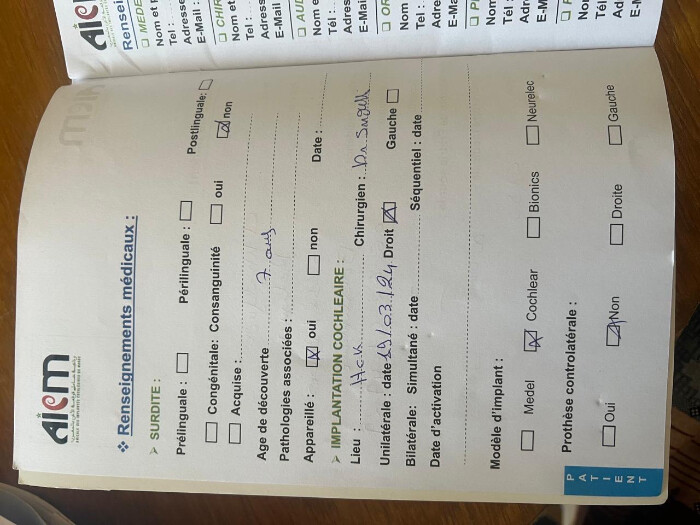 AICM
❖ Renseignements médicaux :
➢ SURDITE :
Prélinguale : ☐ Périlinguale : ☐ Postlinguale: ☐
☐ Congénitale: Consanguinité ☐ oui ☑ non
☐ Acquise :
Age de découverte 7 ans
Pathologies associées :
Appareillé : ☒ oui ☐ non Date :
➢ IMPLANTATION COCHLEAIRE :
Lieu : Hck Chirurgien : Dr
Unilatérale : date 19/03/24 Droit ☒ Gauche ☐
Bilatérale: Simultané : date Séquentiel : date
Date d'activation
Modèle d'implant :
☐ Medel ☒ Cochlear ☐ Bionics ☐ Neurelec
Prothèse controlatérale :
☐ Oui ☑ Non ☐ Droite ☐ Gauche
PATIENT
AICM
Renseig
☐ MEDE
Nom et p
Tel :
Adresse
E-Mail :
☐ CHIR
Nom et
Tel :
Adress
E-Mail
☐ AUD
Nom e
Tél :
Adres
E-Mai
☐ OR
Nom
Tel :
Adre
E-Ma
☐ P
Nom
Tél :
Adr
E-M
Nor
Té
Ad
E-